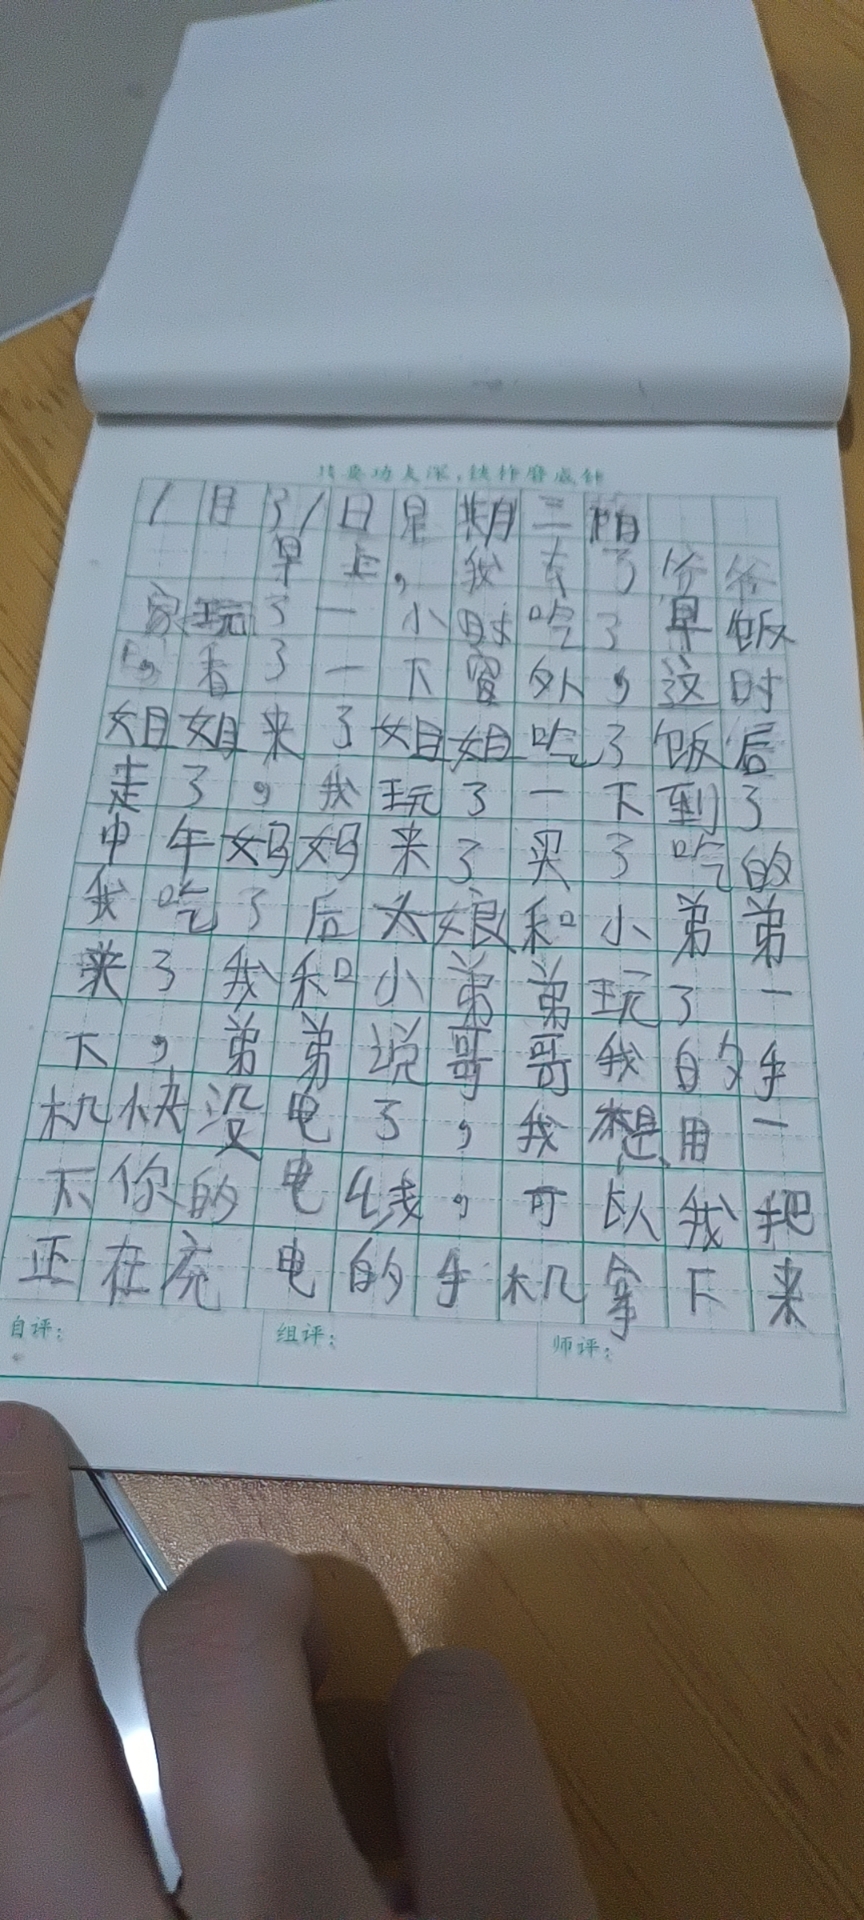 只要功夫深，铁杵磨成针
1月31日星期三 阴
早上，我去了爷爷
家玩了一小时吃了早饭
后，看了一下窗外，这时
姐姐来了姐姐吃了饭后
走了，我玩了一下到了
中午妈妈来了买了吃的
我吃了后大娘和小弟弟
来了我和小弟弟玩了一
下，弟弟说哥哥我的手
机快没电了，我想用一
下你的电线，可以我把
正在充电的手机拿下来
自评： 组评： 师评：